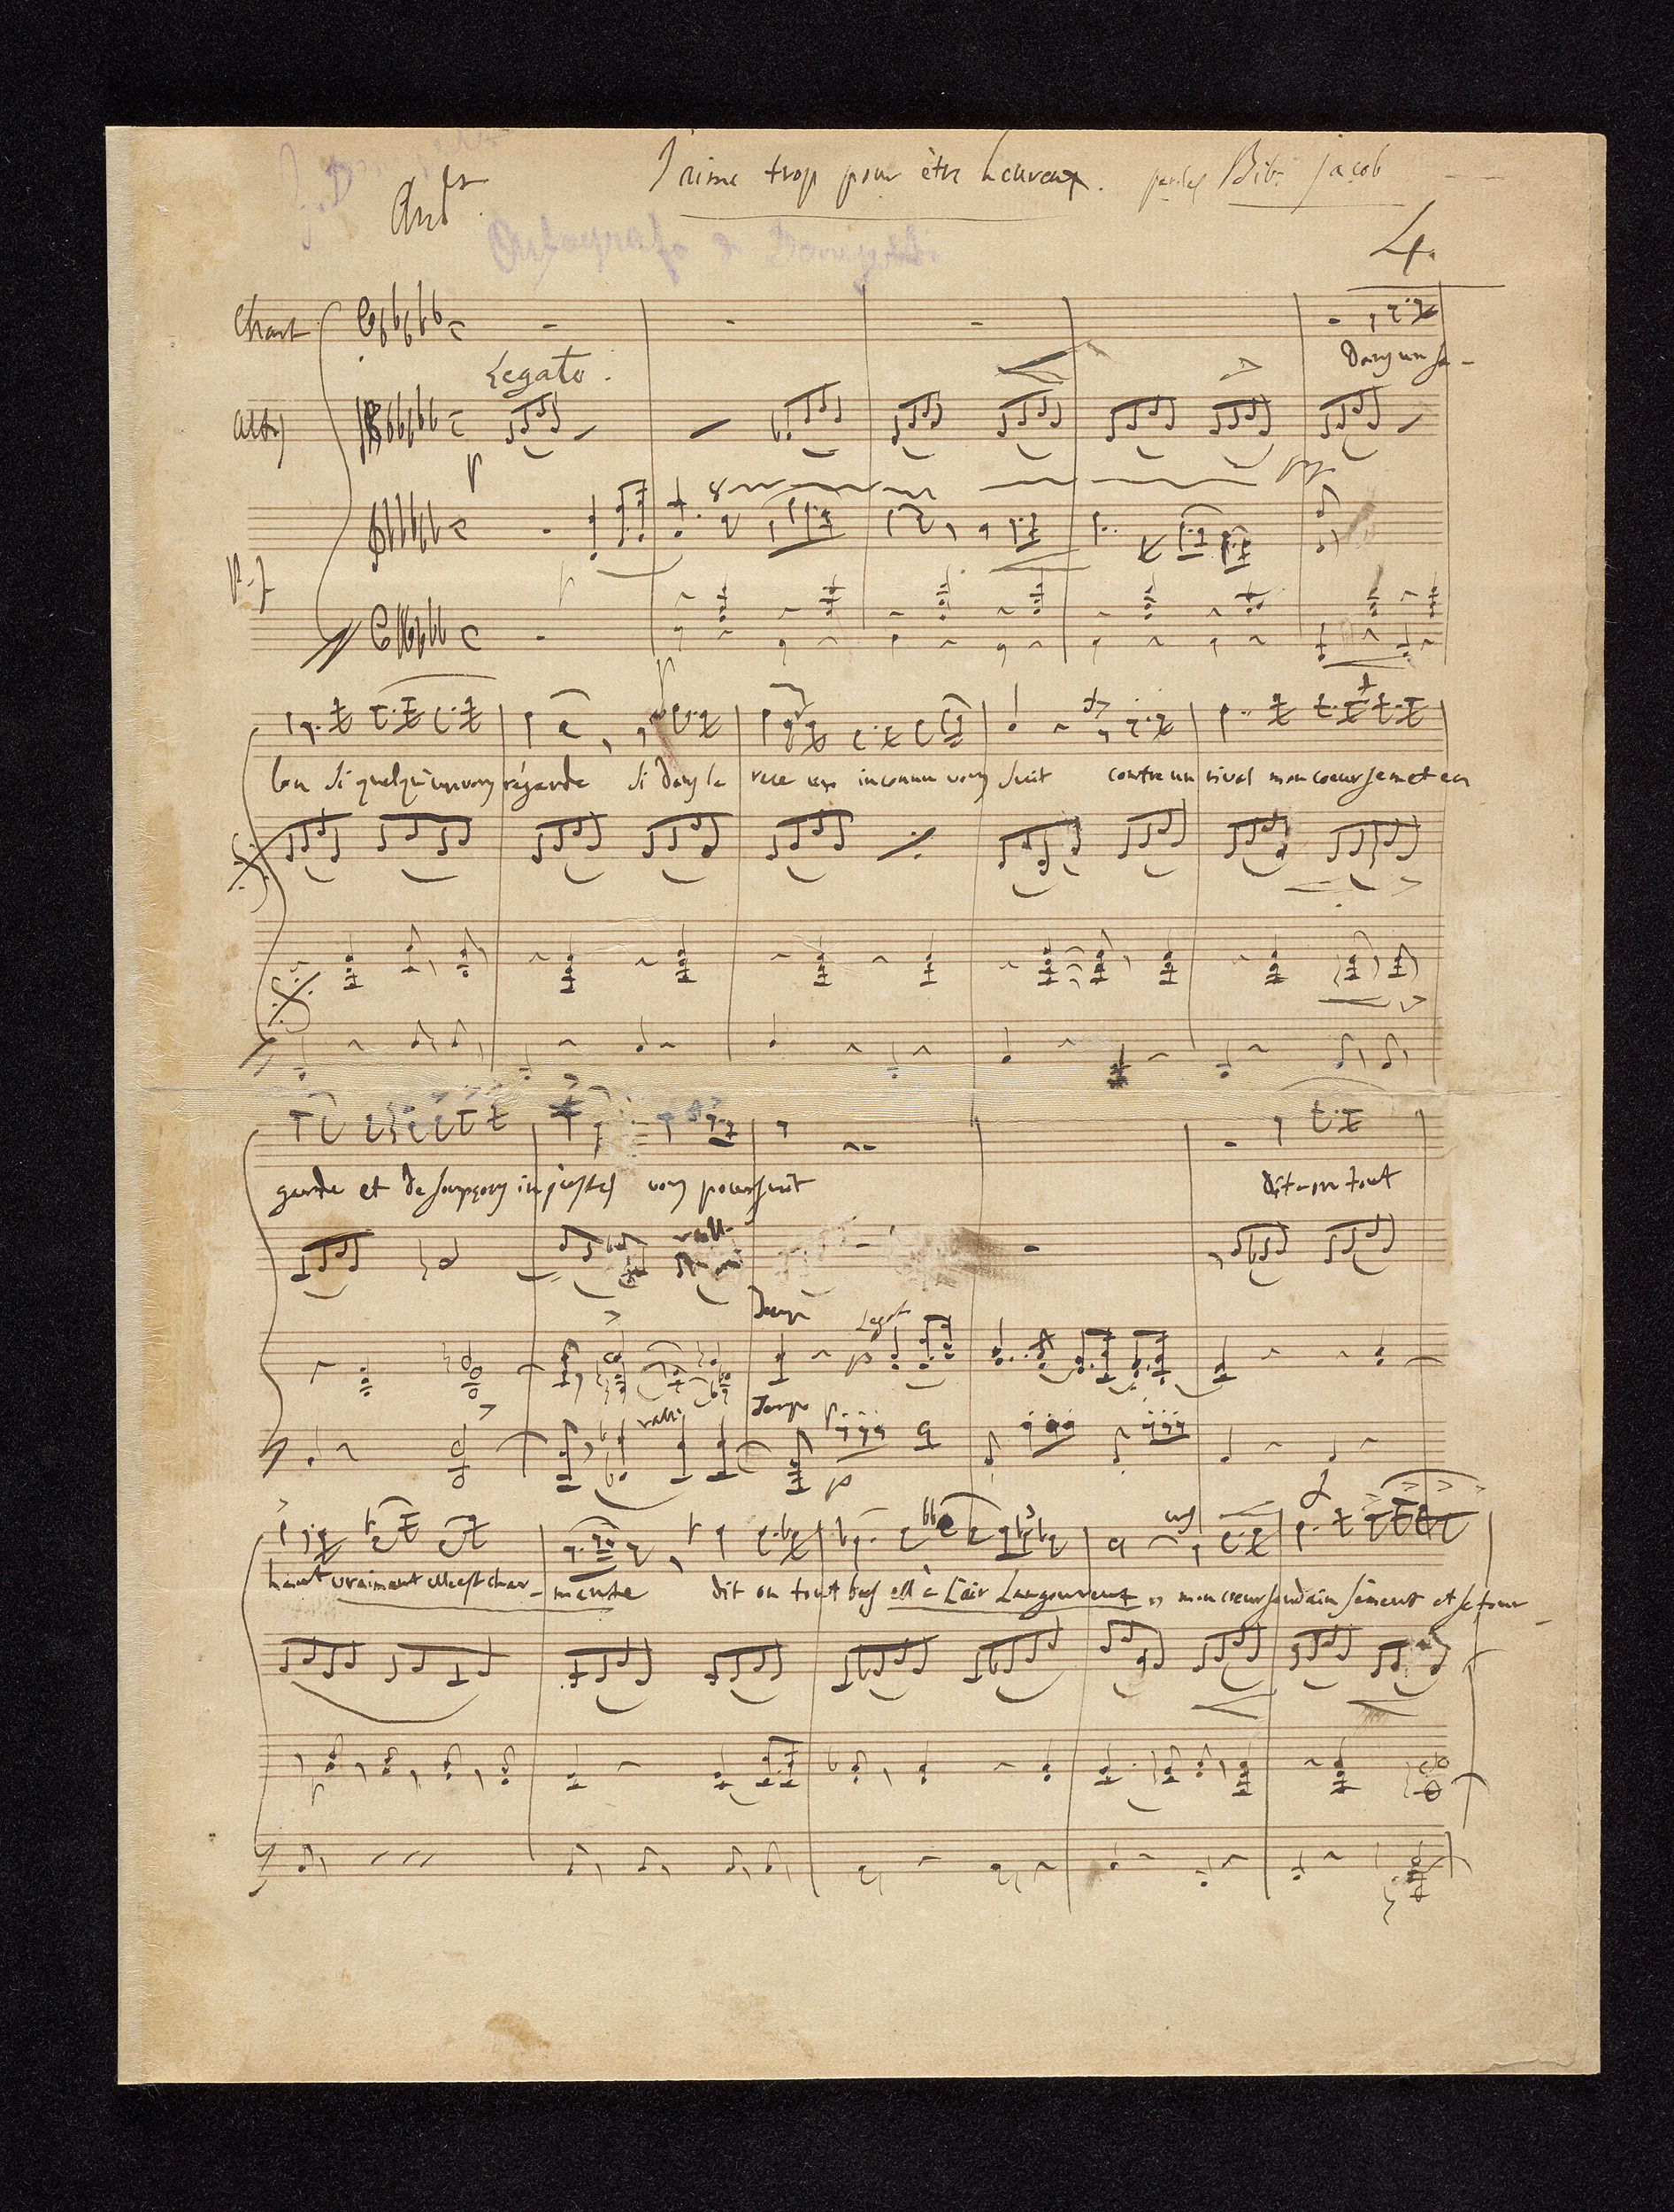 J'aime trop pour être heureux. paroles Bib. jacob
And
Autografo di Donizetti
4.
Chant
Legato.
Dans un sa-
Altos
p
pp
8
P-f
lon si quelqu'un vous régarde si dans la rue un inconnu vous suit contre un rival mon coeur se met en
garde et de soupçons injustes vous poursuit dit-on tout
rall.
Tempo
Legato
rall:
Tempo
p
haut vraiment elle est char-mante dit on tout bas ell' à l'air langoureux " mon coeur soudain s'émeut et se tour-